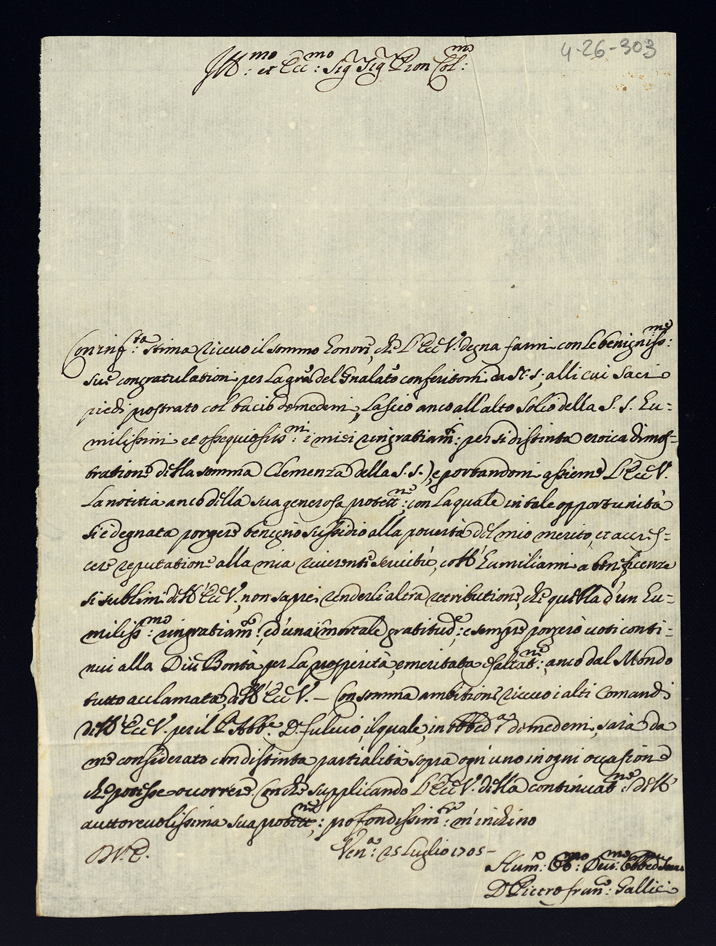 4-26-303
Ill:mo et Ecc:mo Sig Sig Pron Col:mo
Con inf:ta stima ricevo il sommo honore, che L'Ecc V. degna farmi con le benigniss:me
sue congratulationi per La gra del Gnalato conferitomi da N. S., alli cui Sacri
piedi postrato col bacio de medemi, Lascio anco all'alto Solio della S. S. Hu-
milissimi et ossequiosis:mi i miei ringratiam: per si distinta eroica dimos-
tratione della somma Clemenza della S. S., e portandomi assieme L'Ecc V.
La notitia anco della sua generosa protett:ne con La quale in tale opportunità
si è degnata porgere benigno sussidio alla povertà del mio merito, et accres-
cere reputatione alla mia riverente servitù, ch'humiliarmi a beneficenze
si sublimi dell'Ecc V., non saprei renderli altra retributione, che quella d'un Hu-
miliss:mo ringratiam:to, ed una immortale gratitudine; e sempre porgerò voti conti-
nui alla Div: Bontà per La prosperità, e meritata esaltat:ne, anco dal Mondo
tutto acclamata, dell'Ecc V. — Con somma ambitione ricevo i alti comandi
dell'Ecc V. per il P. Abbe D. Fulvio il quale, in obbed:za de medemi, sarà da
me considerato con distinta partialità sopra ogn'uno in ogni occasione
che potesse occorrere. Con che supplicando L'Ecc V. della continuat:ne dell'
auttorevolissima sua protett:ne, profondissim:te m'inchino
D. V. E.
Ven:a 25 Luglio 1705 —
Hum:mo Devot:mo Obbed
D. Pietro Fran:o Gallici